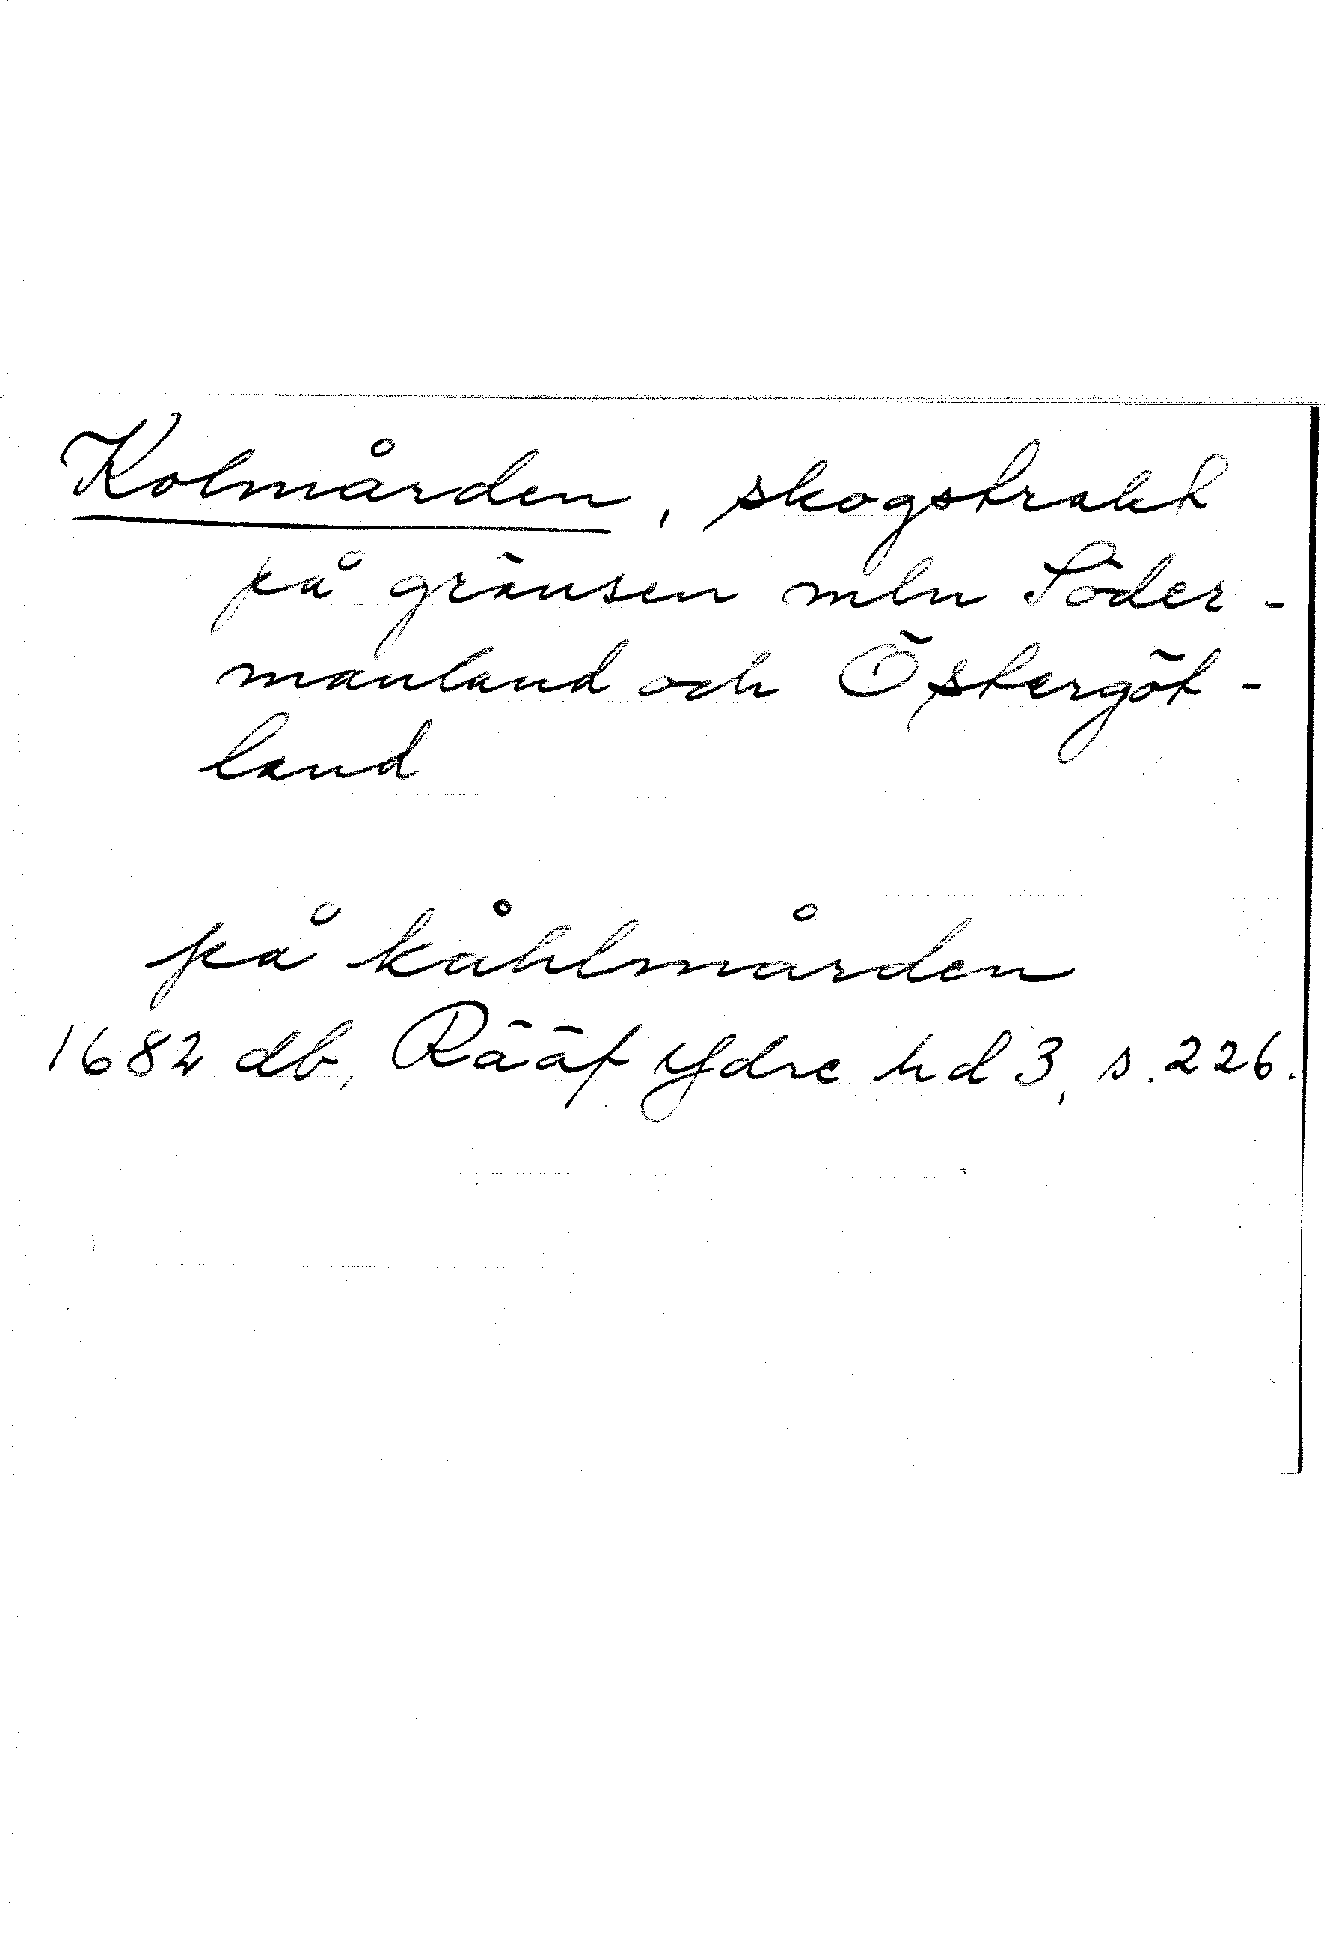 Kolmården, skogstrakt
på gränsen mln Söder-
manland och Östergöt-
land
på kåhlmården
1682 db, Rääf Ydre hd 3, s. 226.